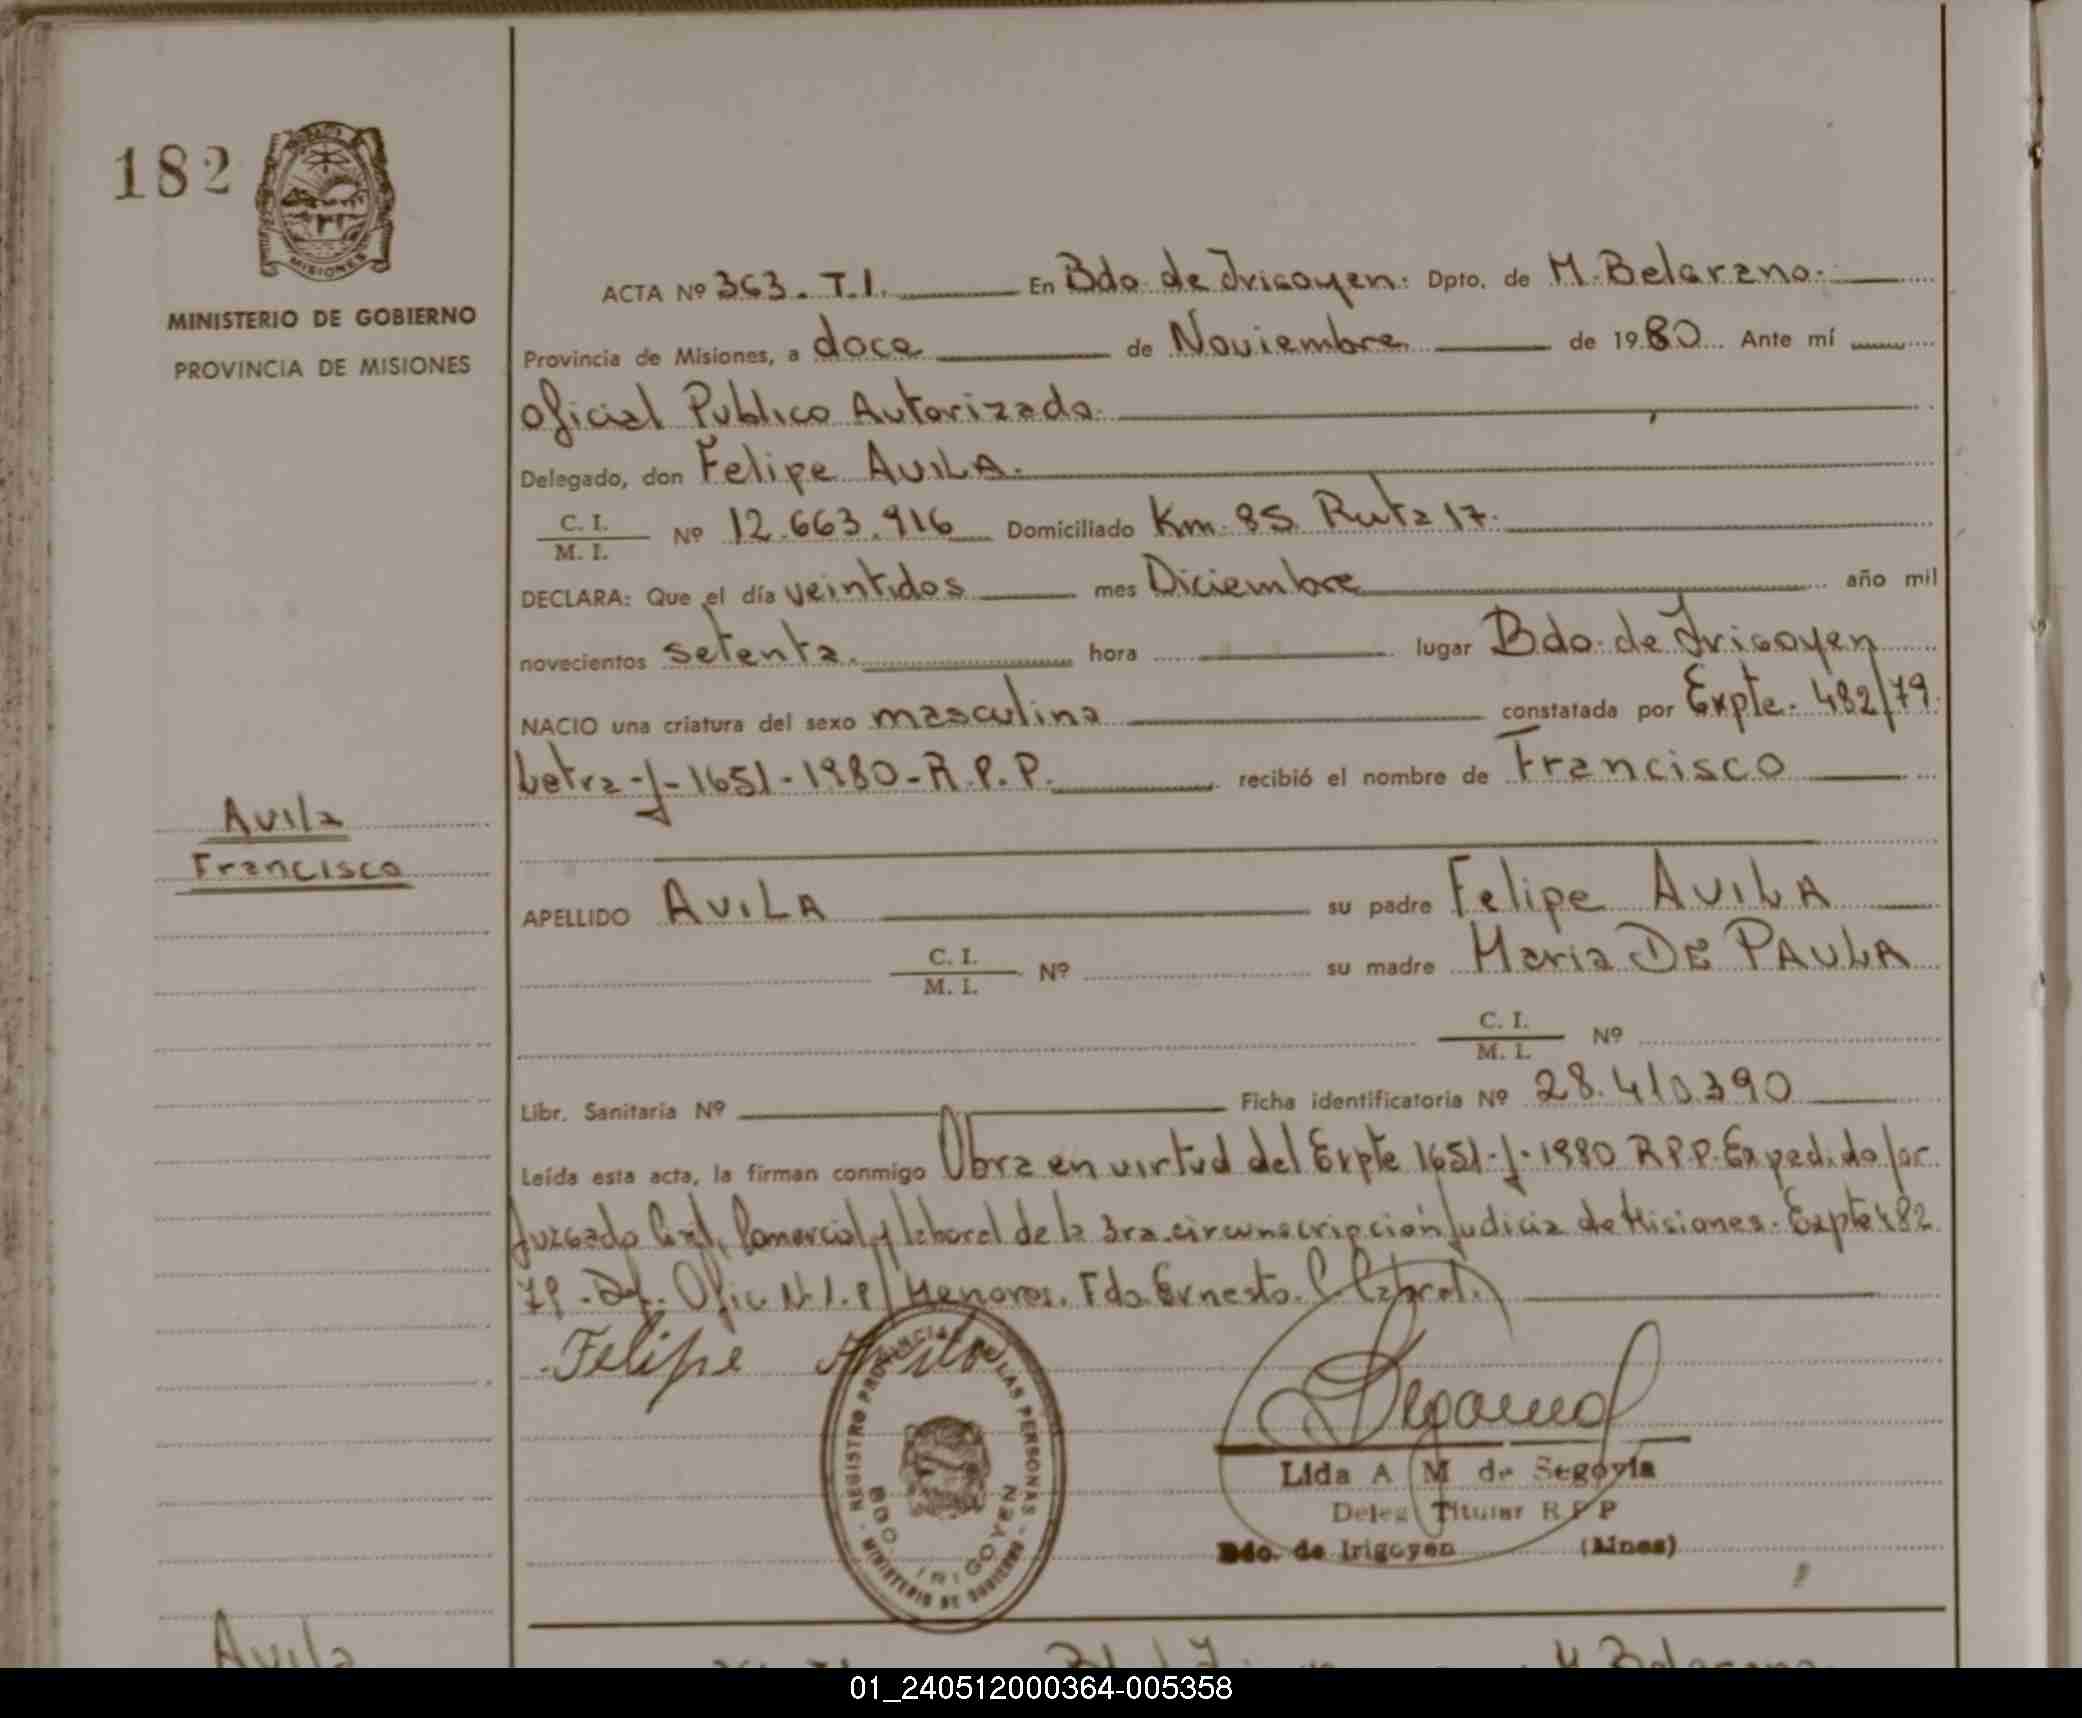 182
MISIONES
MINISTERIO DE GOBIERNO
PROVINCIA DE MISIONES
Avila
Francisco
ACTA Nº 363. T.I. En Bdo. de Irigoyen. Dpto. de M. Belgrano.
Provincia de Misiones, a doce de Noviembre de 1980 Ante mí
Oficial Publico Autorizado.
Delegado, don Felipe AVILA.
C. I.
M. I. Nº 12.663.916 Domiciliado Km. 95 Ruta 17.
DECLARA: Que el día veintidos mes Diciembre año mil
novecientos setenta. hora lugar Bdo. de Irigoyen
NACIO una criatura del sexo masculina constatada por Expte. 482/79.
Letra -J- 1651-1980-R.P.P. recibió el nombre de Francisco
APELLIDO AVILA su padre Felipe AVILA
C. I.
M. I. Nº su madre Maria DE PAULA
C. I.
M. I. Nº
Libr. Sanitaria Nº Ficha identificatoria Nº 28.410.390
Leída esta acta, la firman conmigo Obra en virtud del Expte 1651-J-1980 R.P.P. Expedido por
Juzgado Civil, Comercial y laboral de la 3ra circunscripción Judicia de Misiones. Expte 482
79. Def. Ofic. N. 1. p/ Menores. Fdo. Ernesto. C Cabral.
Felipe Avila
REGISTRO PROVINCIAL DE LAS PERSONAS
BDO IRIGOYEN
MINISTERIO DE GOBIERNO
Lida A M de Segovia
Deleg Titular R P P
Bdo. de Irigoyen (Mnes)
Avila
01_240512000364-005358